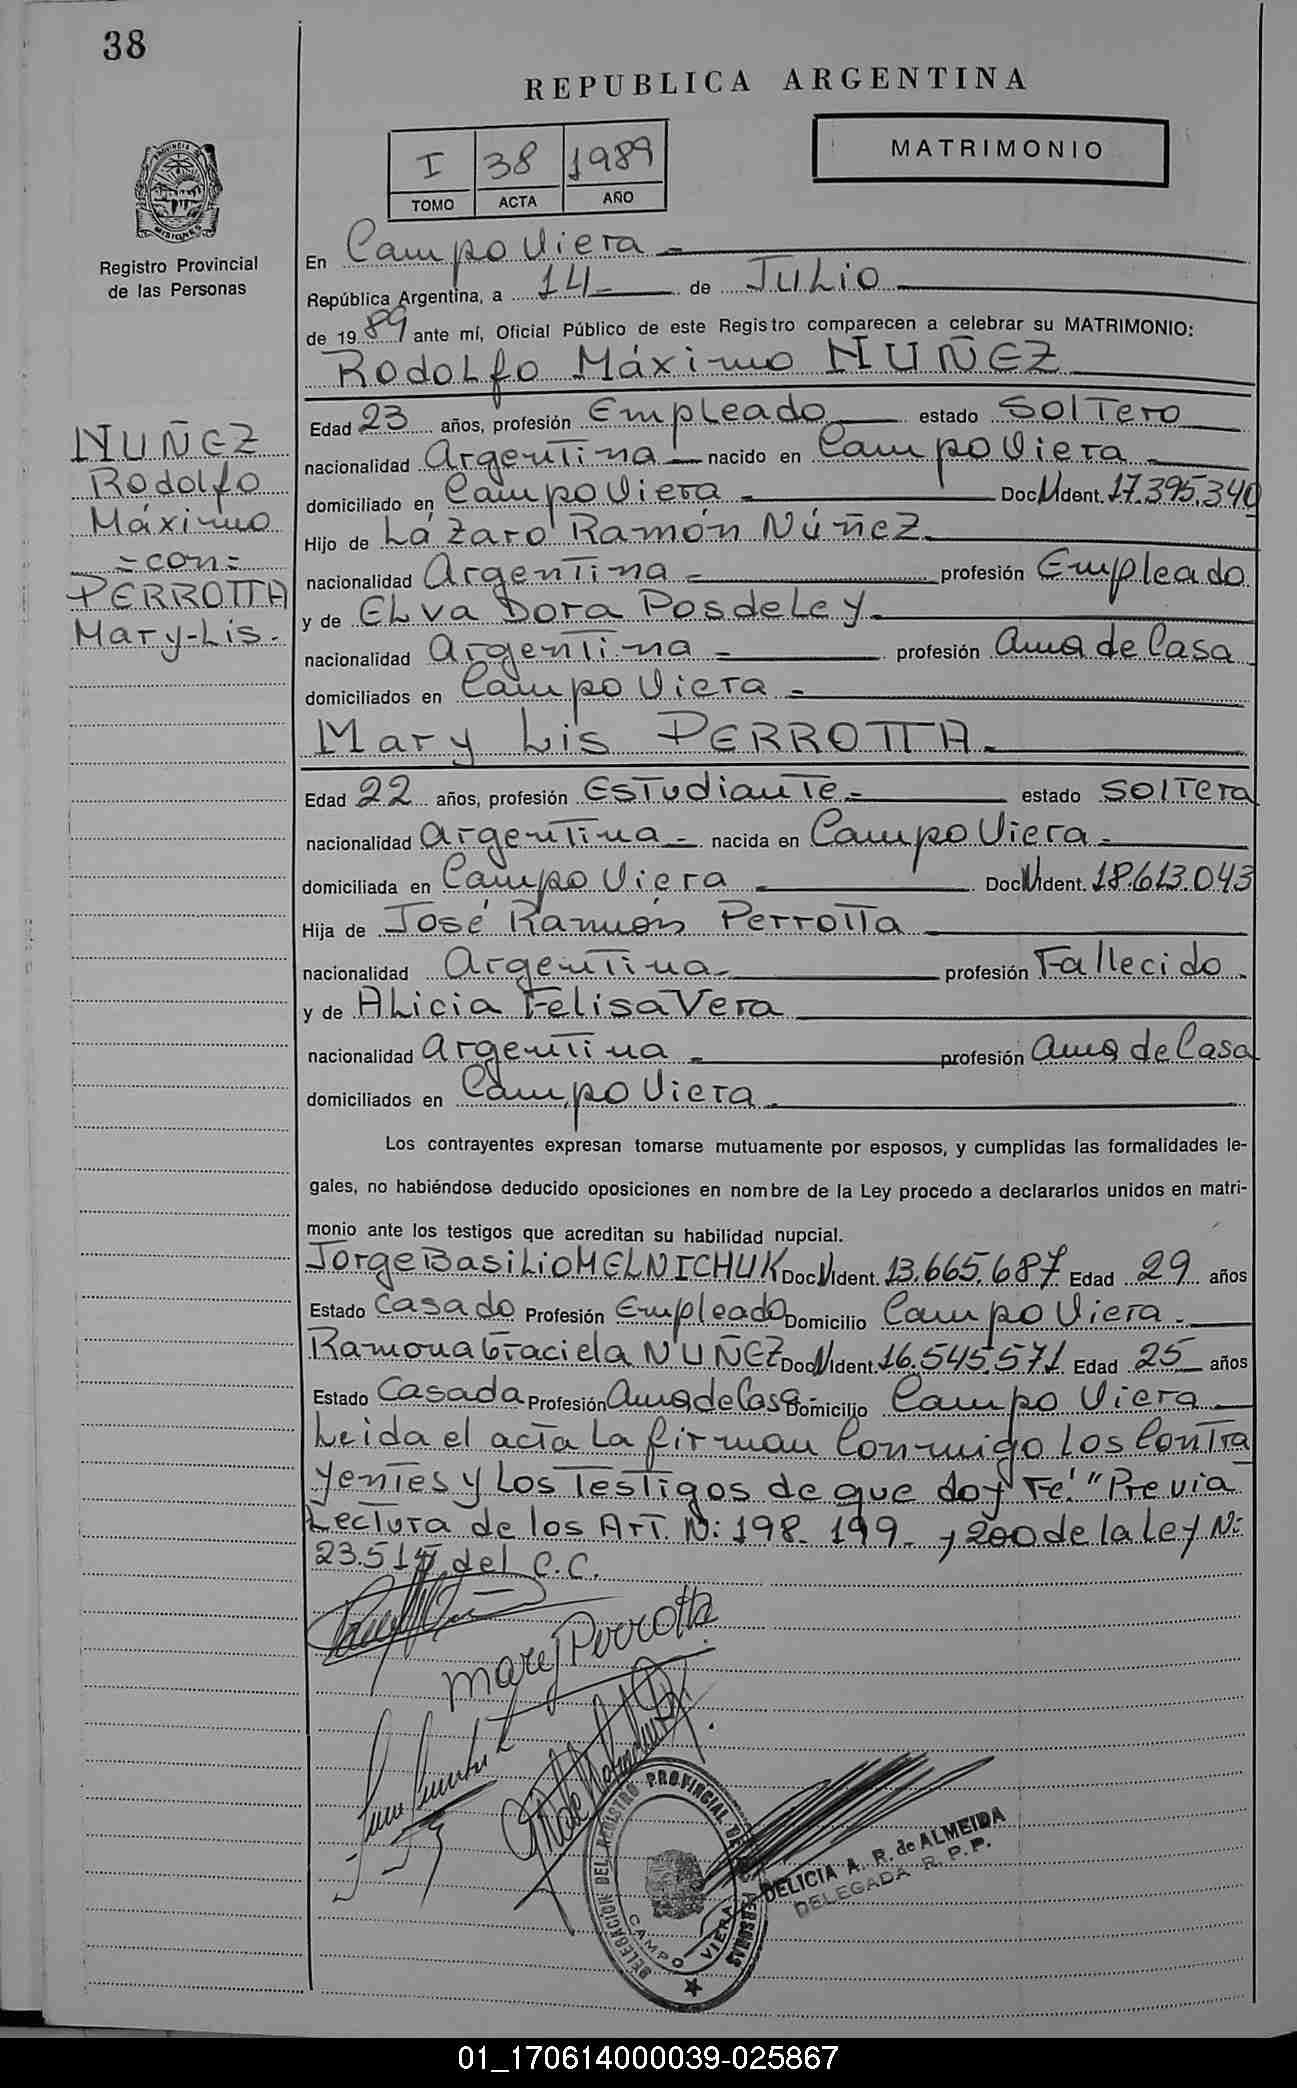 38
REPUBLICA ARGENTINA
I 38 1989
TOMO ACTA AÑO
MATRIMONIO
PROVINCIA DE
MISIONES
Registro Provincial
de las Personas
En Campo Viera -
República Argentina, a 14 - de Julio
de 1989 ante mí, Oficial Público de este Registro comparecen a celebrar su MATRIMONIO:
Rodolfo Máximo NUÑEZ
Edad 23 años, profesión Empleado estado Soltero
nacionalidad Argentina nacido en Campo Viera -
domiciliado en Campo Viera - Doc. Ident. 17.395.340
Hijo de Lázaro Ramón Núñez.
nacionalidad Argentina - profesión Empleado
y de Elva Dora Posdeley.
nacionalidad Argentina - profesión Ama de Casa
domiciliados en Campo Viera -
NUÑEZ
Rodolfo
Máximo
=con=
PERROTTA
Mary-Lis.
Mary Lis PERROTTA.
Edad 22 años, profesión Estudiante - estado Soltera
nacionalidad Argentina - nacida en Campo Viera -
domiciliada en Campo Viera Doc. Ident. 18.613.043
Hija de José Ramón Perrotta
nacionalidad Argentina - profesión Fallecido.
y de Alicia Felisa Vera
nacionalidad Argentina - profesión Ama de Casa
domiciliados en Campo Viera.
Los contrayentes expresan tomarse mutuamente por esposos, y cumplidas las formalidades le-
gales, no habiéndose deducido oposiciones en nombre de la Ley procedo a declararlos unidos en matri-
monio ante los testigos que acreditan su habilidad nupcial.
Jorge Basilio MELNICHUK Doc. Ident. 13.665.687 Edad 29 años
Estado Casado Profesión Empleado Domicilio Campo Viera -
Ramona Graciela NUÑEZ Doc. Ident. 16.545.571 Edad 25 años
Estado Casada Profesión Ama de Casa Domicilio Campo Viera
Leida el acta la firman Conmigo los Contra
yentes y los Testigos de que doy Fé. "Previa
Lectura de los Art. N: 198- 199- y 200 de la Ley N:
23.515 del C.C.
Mary Perrotta
DELEGACION DEL REGISTRO PROVINCIAL DE LAS PERSONAS
CAMPO VIERA
DELICIA A. R. de ALMEIDA
DELEGADA R. P. P.
01_170614000039-025867